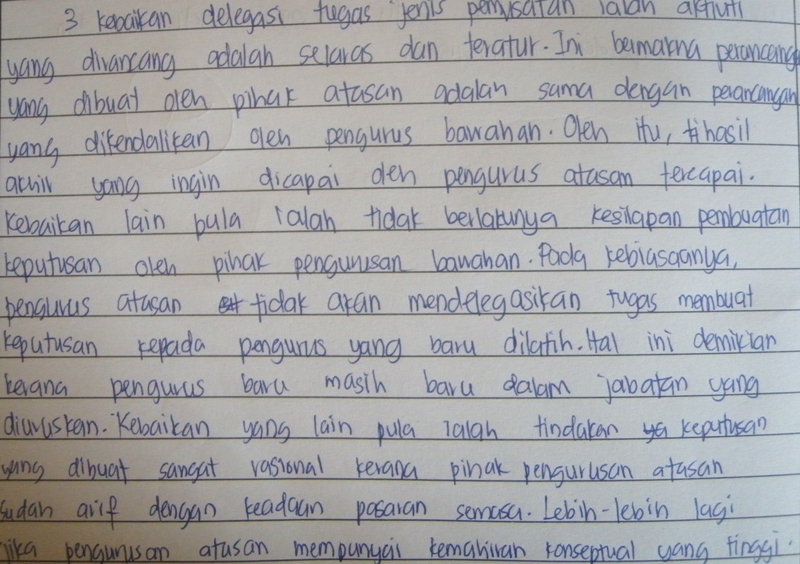 3 kebaikan delegasi tugas jenis pemusatan ialah aktiviti
yang dirancang adalah selaras dan teratur. Ini bermakna perancang
yang dibuat oleh pihak atasan adalah sama dengan perancangan
yang dikendalikan oleh pengurus bawahan. Oleh itu, hasil
akhir yang ingin dicapai oleh pengurus atasan tercapai.
Kebaikan lain pula ialah tidak berlakunya kesilapan pembuatan
keputusan oleh pihak pengurusan bawahan. Pada kebiasaanya,
pengurus atasan tidak akan mendelegasikan tugas membuat
keputusan kepada pengurus yang baru dilatih. Hal ini demikian
kerana pengurus baru masih baru dalam jabatan yang
diuruskan. Kebaikan yang lain pula ialah tindakan keputusan
yang dibuat sangat rasional kerana pihak pengurusan atasan
sudah arif dengan keadaan pasaran semasa. Lebih-lebih lagi
jika pengurusan atasan mempunyai kemahiran konseptual yang tinggi.